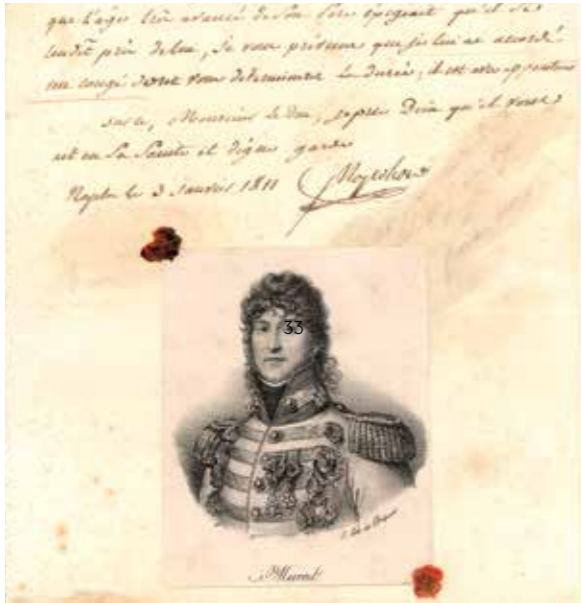 que l'âge très avancé de son Père exigeait qu'il se
rendît près de lui, Je vous préviens que je lui ai accordé
un congé dont vous déterminerez la durée, il est avec appointemens
sur ce, Monsieur le Duc, je prie Dieu qu'il vous
ait en Sa Sainte et digne garde
Naples le 3 Janvier 1811
33
Murat